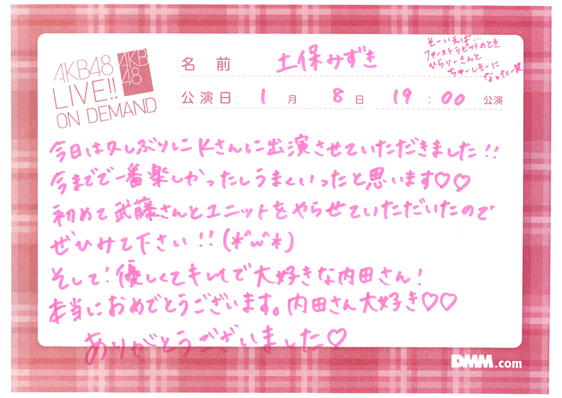 AKB48
LIVE!!
ON DEMAND
AKB
48
名前 土保みずき
そーいえば...
ファーストラビットのとき
ひらりーさんと
ちゅーしそーに
なったー笑
公演日 1月 8日 19:00 公演
今日は久しぶりにKさんに出演させていただきました!!
今までで一番楽しかったしうまくいったと思います♡♡
初めて武藤さんとユニットをやらせていただいたので
ぜひみて下さい!!(*^ω^*)
そして!優しくてキレイで大好きな内田さん!
本当におめでとうございます。内田さん大好き♡♡
ありがとうございました♡
DMM.com